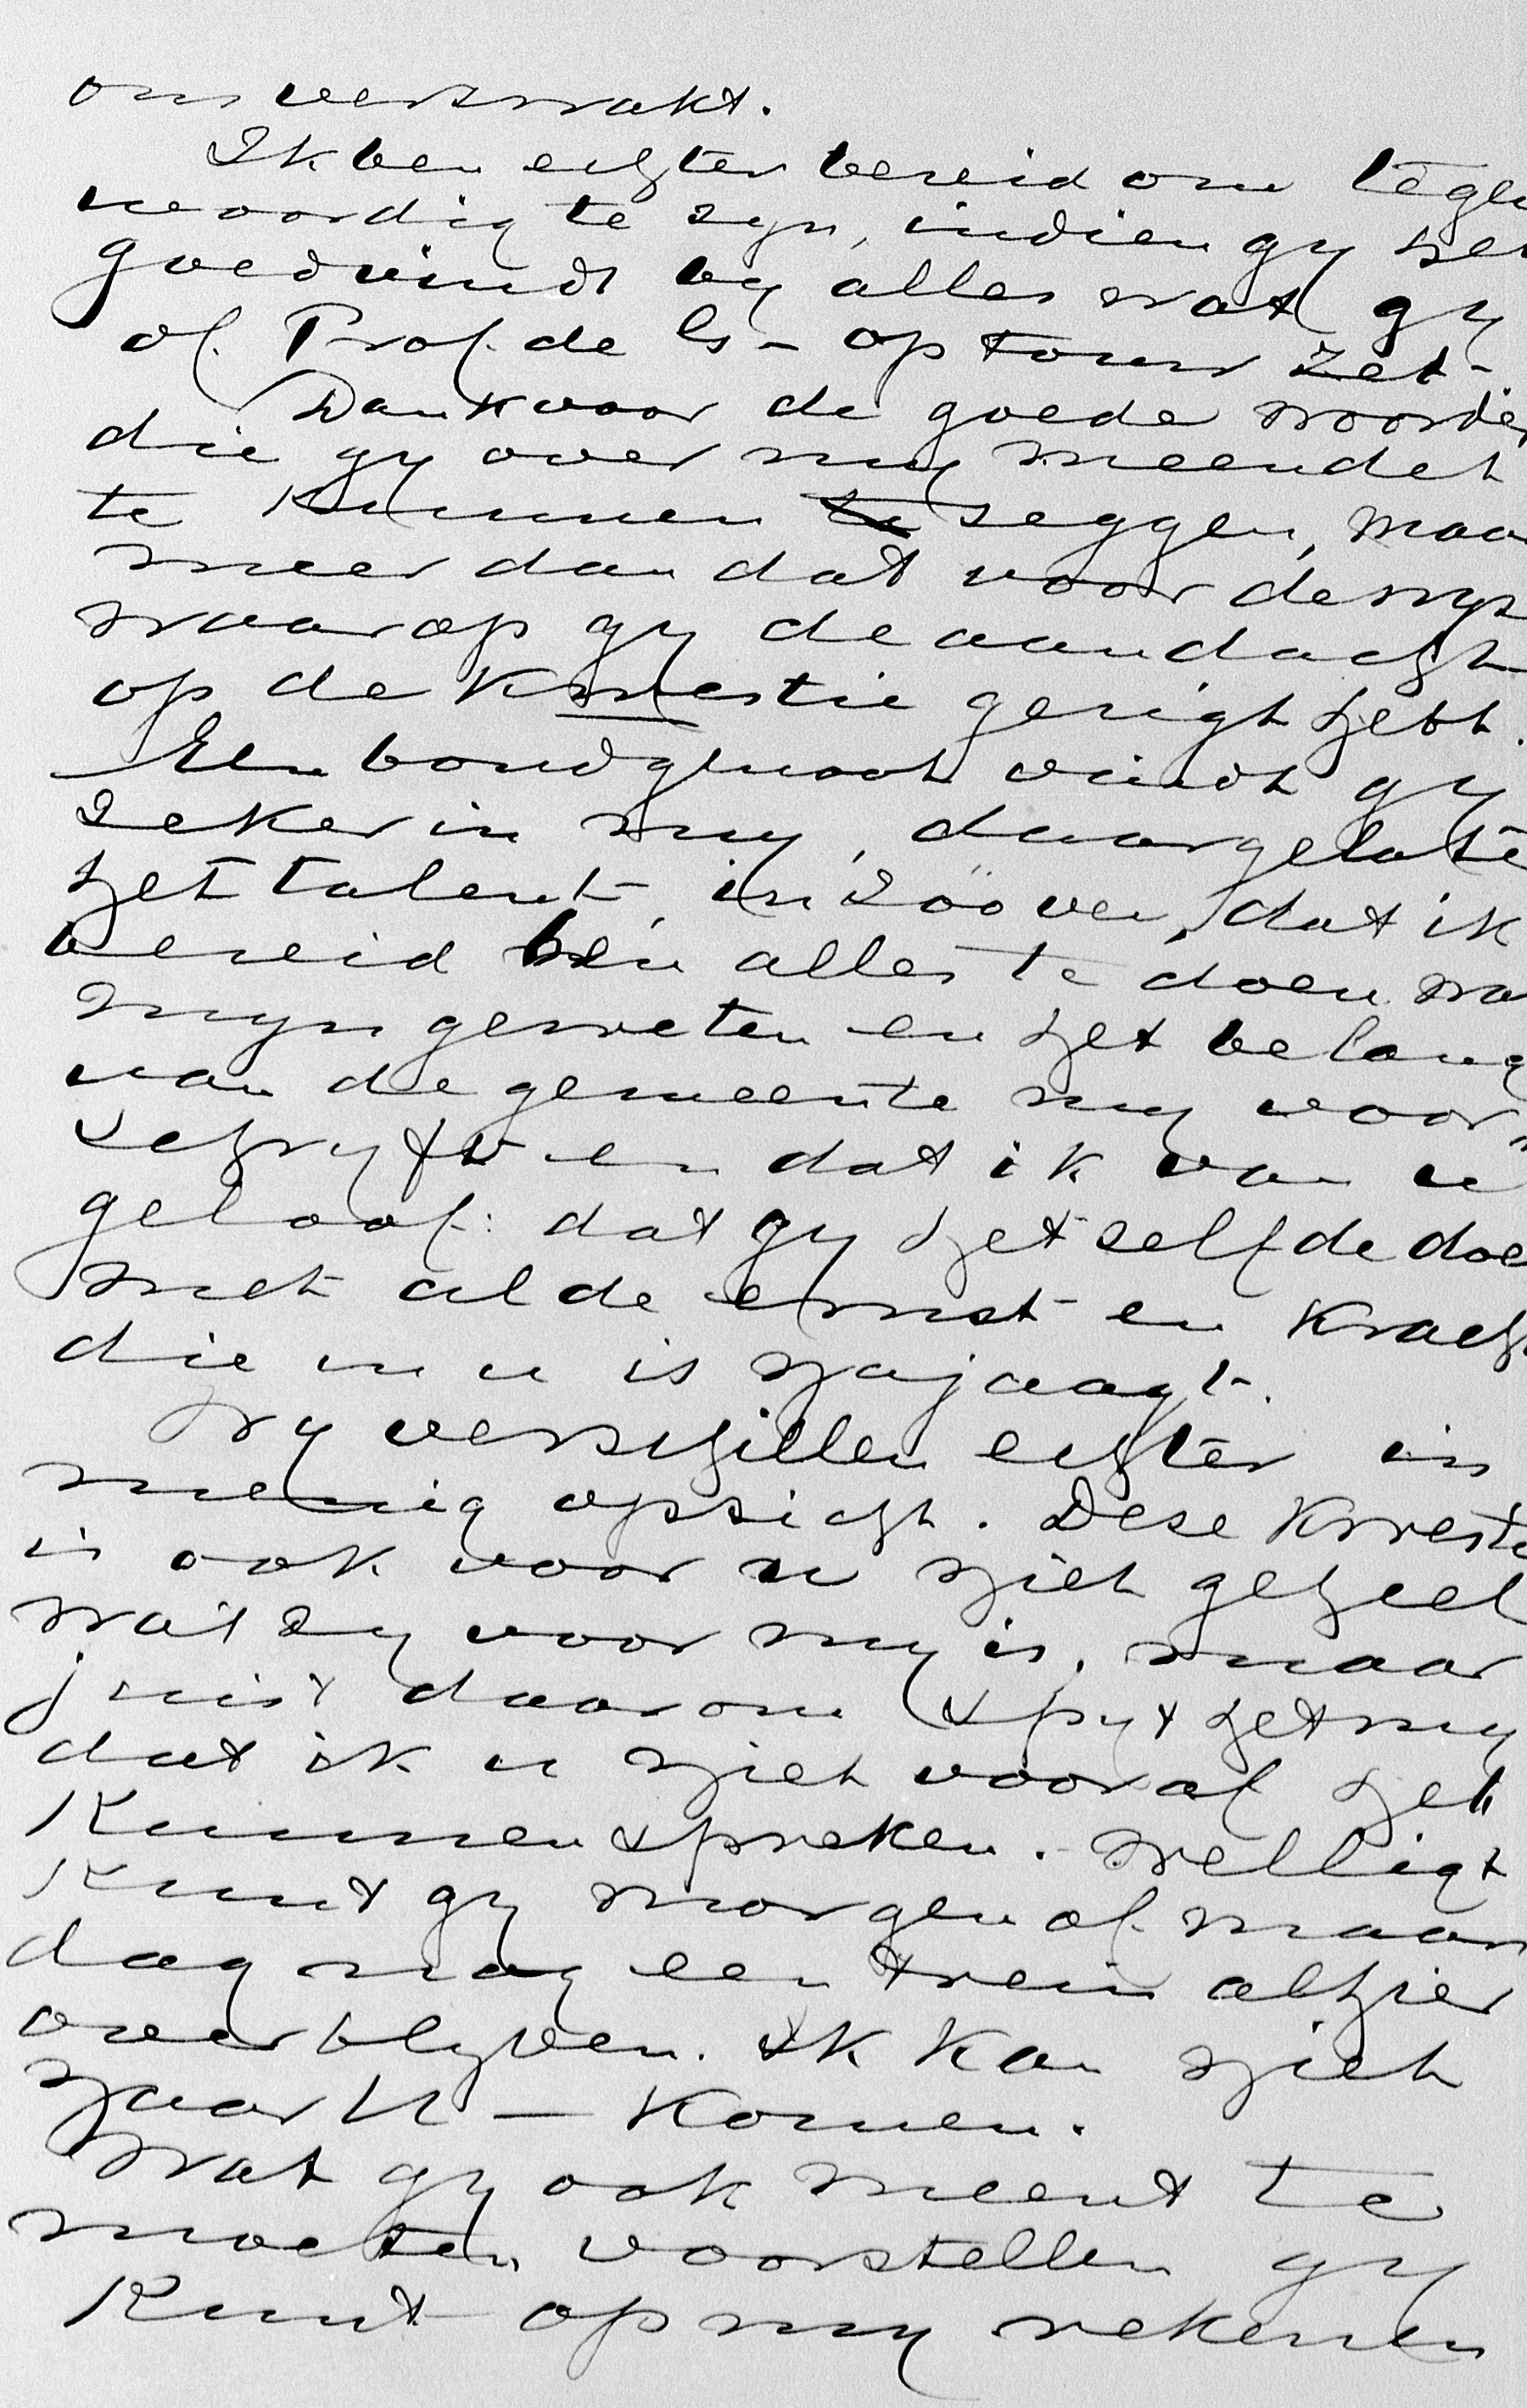 ons verzwakt.
Ik ben echter bereid om tegen
woordig te zyn, indien gy het
goedvindt by alles wat gy
of Prof. de G– op touw zet.
Dank voor de goede woorden
die gy over my meendet
te kunnen te zeggen, maar
meer dan dat voor de wys
waarop gy de aandacht
op de kwestie gerigt hebt.
Een bondgenoot vindt gy
zeker in my, daargelaten
het talent, in zóóver, dat ik
bereid ben alles te doen wa
myn geweten en het belang
van de gemeente my voor
schryft en dat ik van u
geloof: dat gy hetzelfde doe
met al de ernst en kracht
die in u is najaagt.
Wy verschillen echter in
menig opzicht. Deze kweste
is ook voor u niet geheel
wat zy voor my is, maar
juist daarom spyt het my
dat ik u niet vooraf heb
kunnen spreken. Welligt
kunt gy morgen of maan
dag nog een trein alhier
overblyven. Ik kan niet
naar U– komen.
Wat gy ook meent te
moeten voorstellen gy
kunt op my rekenen